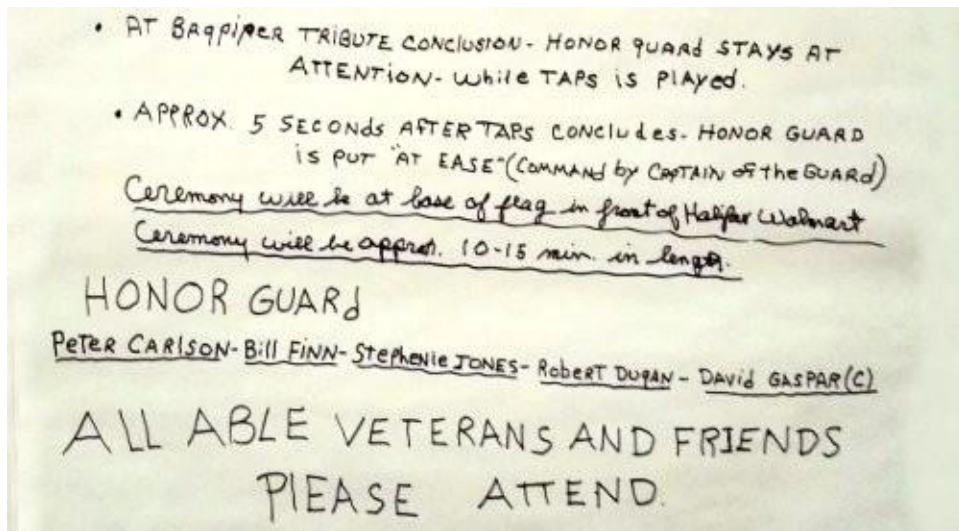 • AT BAgPiPER TRIBUTE CONCLUSION - HONOR gUARD STAYS AT
ATTENTION - while TAPS is PlAYed.
• APPROX. 5 SECONDS AFTER TAPS CONCludes - HONOR GUARD
is PUT "AT EASE" (COMMANd by CAPTAIN of the GUARd)
Ceremony will be at base of flag in front of Halifax Walmart
Ceremony will be approx. 10-15 min. in length.
HONOR GUARd
PeTER CARlSON - Bill FiNN - StepheNie JONES - RobeRT DUgAN - DAVid GASPAR (C)
All ABLE VETERANS AND FRIENDS
PlEASE ATTEND.